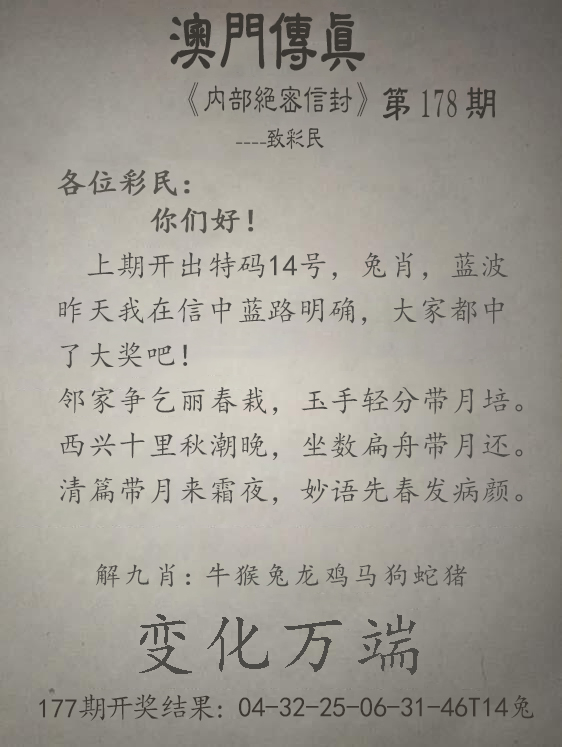 澳門傳眞
《内部絕密信封》第178期
----致彩民
各位彩民：
你们好！
上期开出特码14号，兔肖，蓝波
昨天我在信中蓝路明确，大家都中
了大奖吧！
邻家争乞丽春栽，玉手轻分带月培。
西兴十里秋潮晚，坐数扁舟带月还。
清篇带月来霜夜，妙语先春发病颜。
解九肖：牛猴兔龙鸡马狗蛇猪
变化万端
177期开奖结果：04-32-25-06-31-46T14兔